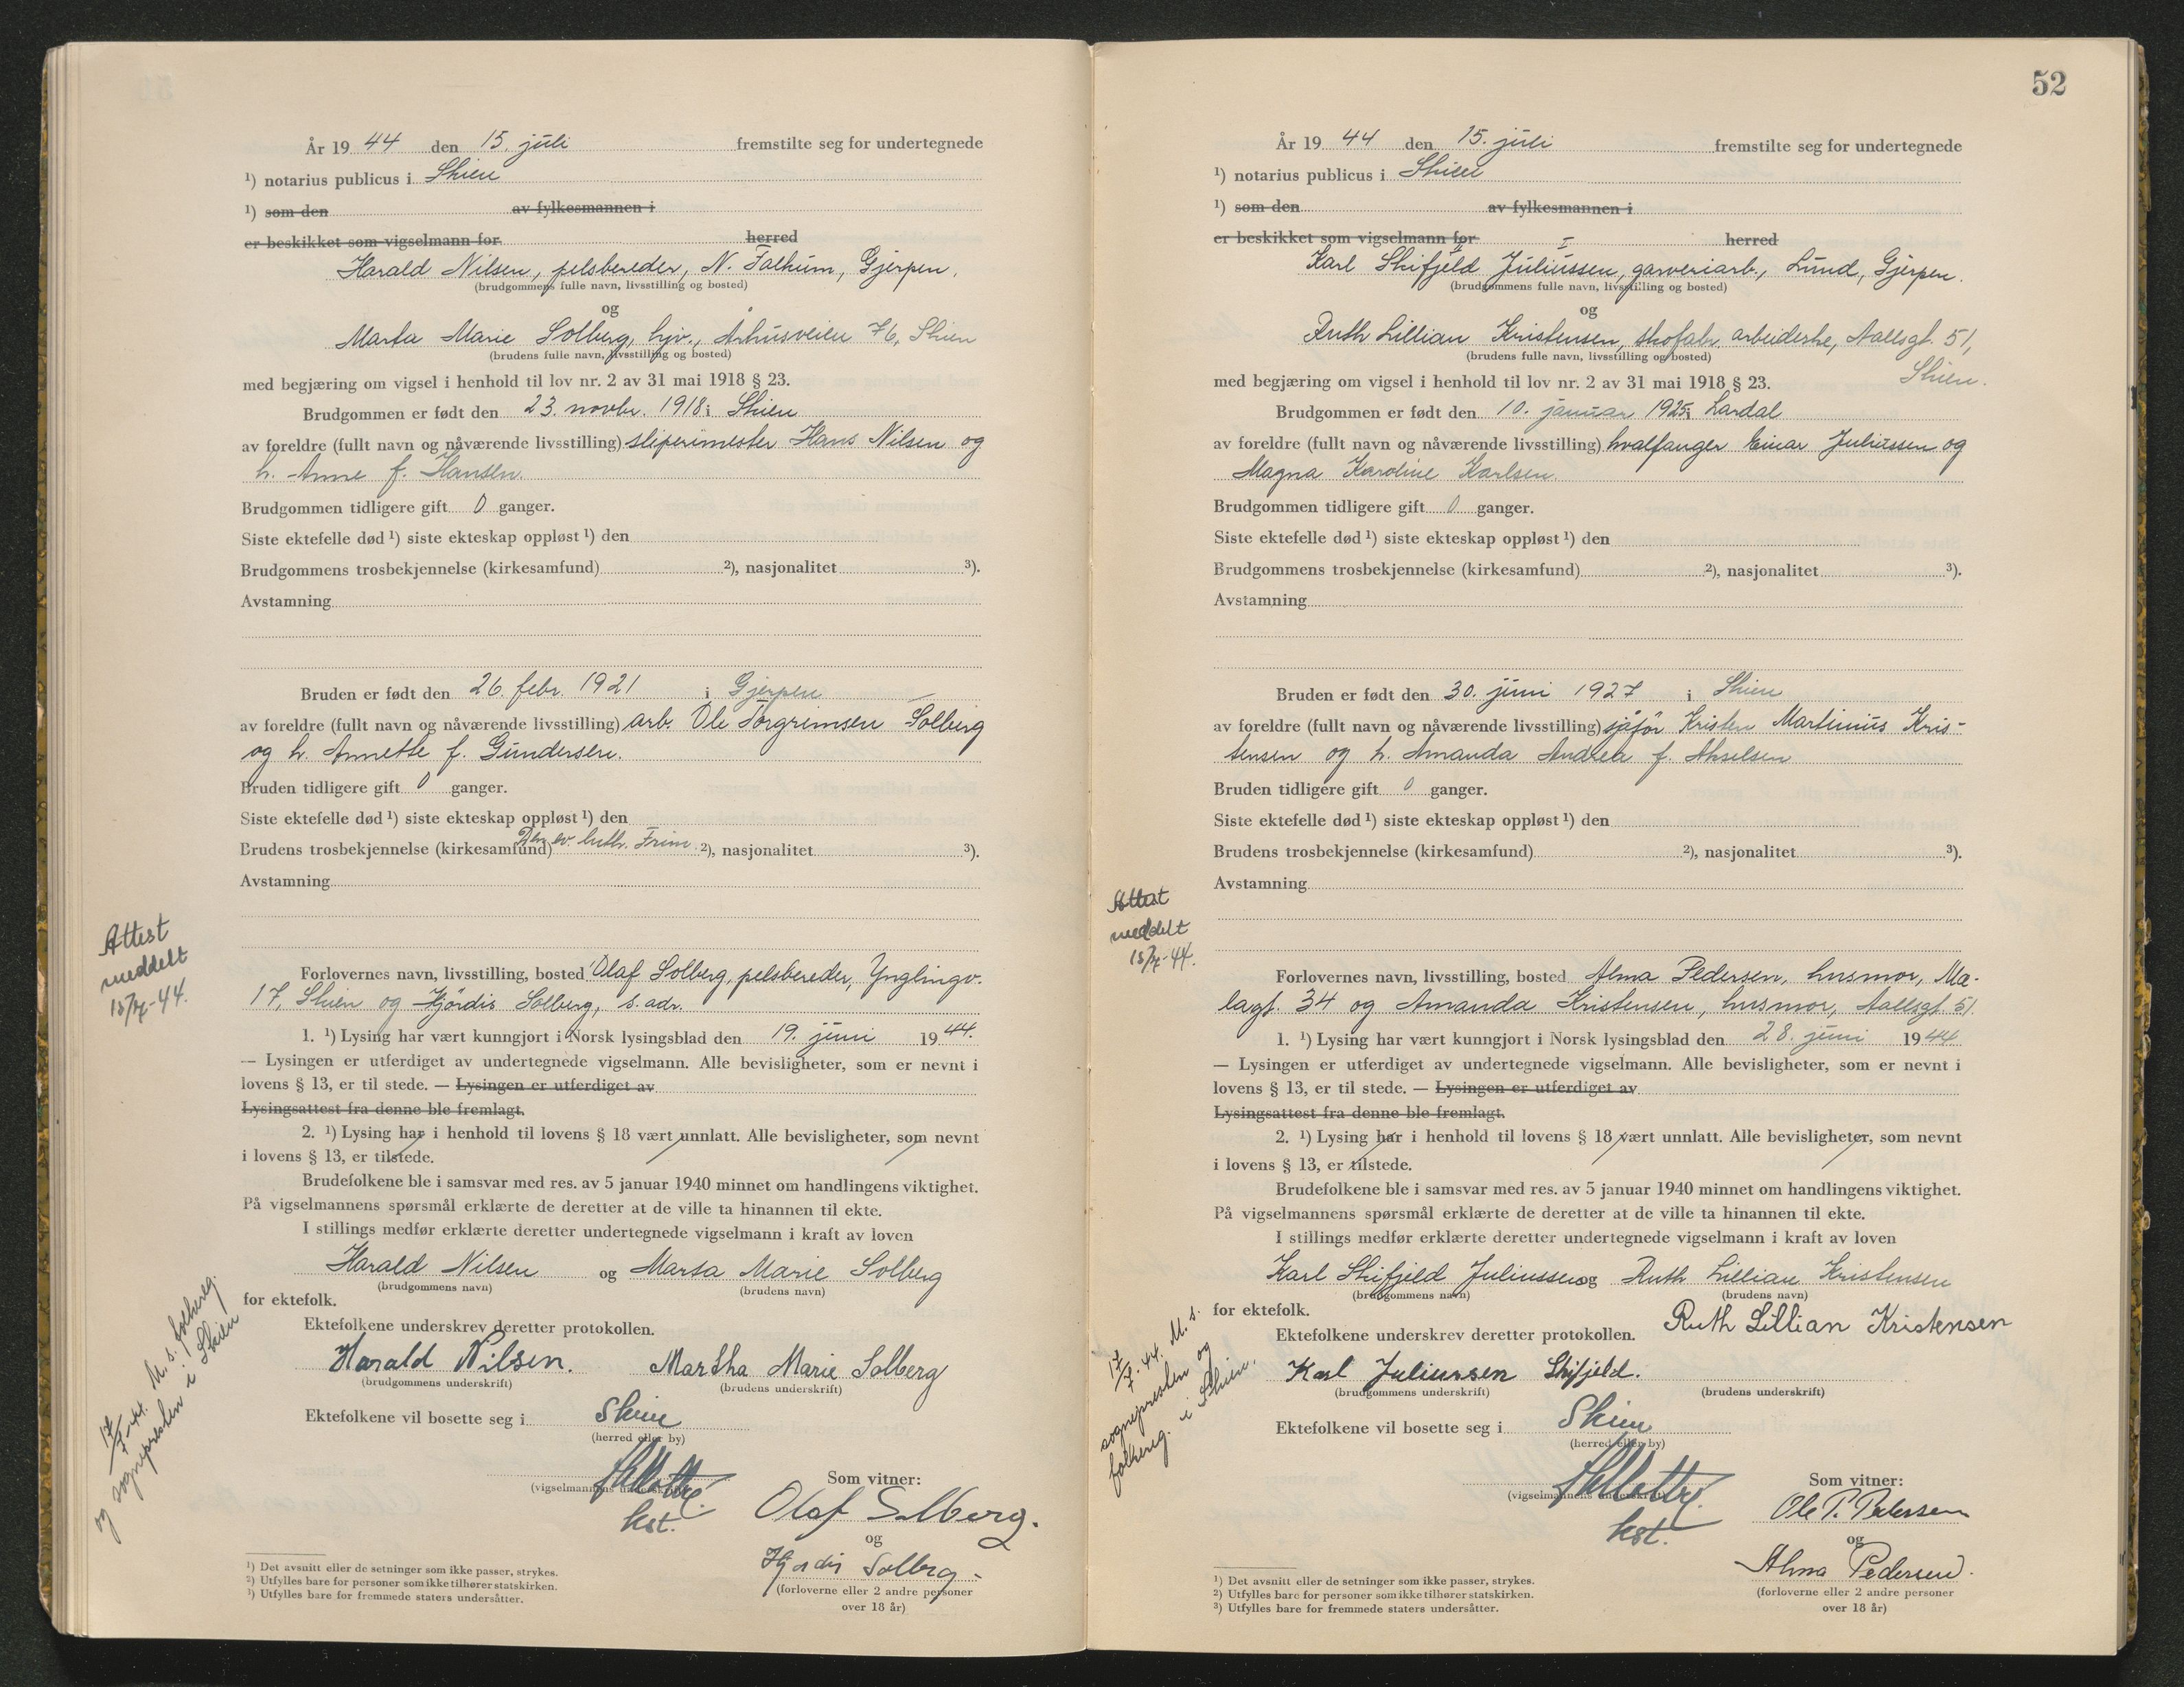 År 19 44 den 15. juli fremstilte seg for undertegnede
¹) notarius publicus i Skien
¹) som den av fylkesmannen i
er beskikket som vigselmann for herred
Harald Nilsen, pelsbereder, N. Falkum, Gjerpen.
(brudgommens fulle navn, livsstilling og bosted)
og
Marta Marie Solberg, hjv., Århusveien 76, Skien
(brudens fulle navn, livsstilling og bosted)
med begjæring om vigsel i henhold til lov nr. 2 av 31 mai 1918 § 23.
Brudgommen er født den 23. novbr. 1918 i Skien
av foreldre (fullt navn og nåværende livsstilling) sliperimester Hans Nilsen og
h. Anne f. Hansen.
Brudgommen tidligere gift 0 ganger.
Siste ektefelle død ¹) siste ekteskap oppløst ¹) den
Brudgommens trosbekjennelse (kirkesamfund) ²), nasjonalitet ³).
Avstamning
Bruden er født den 26. febr. 1921 i Gjerpen
av foreldre (fullt navn og nåværende livsstilling) arb. Ole Torgrimsen Solberg
og h. Annette f. Gundersen.
Bruden tidligere gift 0 ganger.
Siste ektefelle død ¹) siste ekteskap oppløst ¹) den
Brudens trosbekjennelse (kirkesamfund) Den ev. luth. Frim. ²), nasjonalitet ³).
Avstamning
Attest
meddelt
15/7-44.
Forlovernes navn, livsstilling, bosted Olaf Solberg, pelsbereder, Ynglingv.
17, Skien og Hjördis Solberg, s. adr.
1. ¹) Lysing har vært kunngjort i Norsk lysingsblad den 19. juni 19 44.
— Lysingen er utferdiget av undertegnede vigselmann. Alle bevisligheter, som er nevnt i
lovens § 13, er til stede. — Lysingen er utferdiget av
Lysingsattest fra denne ble fremlagt.
2. ¹) Lysing har i henhold til lovens § 18 vært unnlatt. Alle bevisligheter, som nevnt
i lovens § 13, er tilstede.
Brudefolkene ble i samsvar med res. av 5 januar 1940 minnet om handlingens viktighet.
På vigselmannens spørsmål erklærte de deretter at de ville ta hinannen til ekte.
I stillings medfør erklærte deretter undertegnede vigselmann i kraft av loven
Harald Nilsen og Marta Marie Solberg
(brudgommens navn) (brudens navn)
for ektefolk.
Ektefolkene underskrev deretter protokollen.
Harald Nilsen. Martha Marie Solberg
(brudgommens underskrift) (brudens underskrift)
17/7-44. M. s. folkereg.
og sognepresten i Skien
Ektefolkene vil bosette seg i Skien
(herred eller by)
(vigselmannens underskrift)
kst.
Som vitner:
Olaf Solberg.
og
Hjørdis Solberg.
(forloverne eller 2 andre personer
over 18 år)
¹) Det avsnitt eller de setninger som ikke passer, strykes.
²) Utfylles bare for personer som ikke tilhører statskirken.
³) Utfylles bare for fremmede staters undersåtter.
52
År 19 44 den 15. juli fremstilte seg for undertegnede
¹) notarius publicus i Skien
¹) som den av fylkesmannen i
er beskikket som vigselmann for herred
Karl Skifjeld Juliussen, garveriarb., Lund, Gjerpen.
(brudgommens fulle navn, livsstilling og bosted)
og
Ruth Lillian Kristensen, skofabr. arbeiderske, Aallsgt. 51,
(brudens fulle navn, livsstilling og bosted)
Skien.
med begjæring om vigsel i henhold til lov nr. 2 av 31 mai 1918 § 23.
Brudgommen er født den 10. januar 1925 i Lardal
av foreldre (fullt navn og nåværende livsstilling) hvalfanger Einar Juliussen og
Magna Karoline Karlsen.
Brudgommen tidligere gift 0 ganger.
Siste ektefelle død ¹) siste ekteskap oppløst ¹) den
Brudgommens trosbekjennelse (kirkesamfund) ²), nasjonalitet ³).
Avstamning
Bruden er født den 30. juni 1927 i Skien
av foreldre (fullt navn og nåværende livsstilling) sjåfør Kristen Martinius Kris-
tensen og h. Amanda Andrea f. Akselsen
Bruden tidligere gift 0 ganger.
Siste ektefelle død ¹) siste ekteskap oppløst ¹) den
Brudens trosbekjennelse (kirkesamfund) ²), nasjonalitet ³).
Avstamning
Attest
meddelt
15/7-44.
Forlovernes navn, livsstilling, bosted Alma Pedersen, husmor, Ma-
lagt. 34 og Amanda Kristensen, husmor, Aallsgt. 51.
1. ¹) Lysing har vært kunngjort i Norsk lysingsblad den 28. juni 19 44
— Lysingen er utferdiget av undertegnede vigselmann. Alle bevisligheter, som er nevnt i
lovens § 13, er til stede. — Lysingen er utferdiget av
Lysingsattest fra denne ble fremlagt.
2. ¹) Lysing har i henhold til lovens § 18 vært unnlatt. Alle bevisligheter, som nevnt
i lovens § 13, er tilstede.
Brudefolkene ble i samsvar med res. av 5 januar 1940 minnet om handlingens viktighet.
På vigselmannens spørsmål erklærte de deretter at de ville ta hinannen til ekte.
I stillings medfør erklærte deretter undertegnede vigselmann i kraft av loven
Karl Skifjeld Juliussen og Ruth Lillian Kristensen
(brudgommens navn) (brudens navn)
for ektefolk.
Ektefolkene underskrev deretter protokollen. Ruth Lillian Kristensen
Karl Juliussen Skifjeld.
(brudgommens underskrift) (brudens underskrift)
17/7-44. M. s.
sognepresten og
folkereg. i Skien.
Ektefolkene vil bosette seg i Skien
(herred eller by)
(vigselmannens underskrift)
kst.
Som vitner:
Ole P. Pedersen
og
Alma Pedersen.
(forloverne eller 2 andre personer
over 18 år)
¹) Det avsnitt eller de setninger som ikke passer, strykes.
²) Utfylles bare for personer som ikke tilhører statskirken.
³) Utfylles bare for fremmede staters undersåtter.